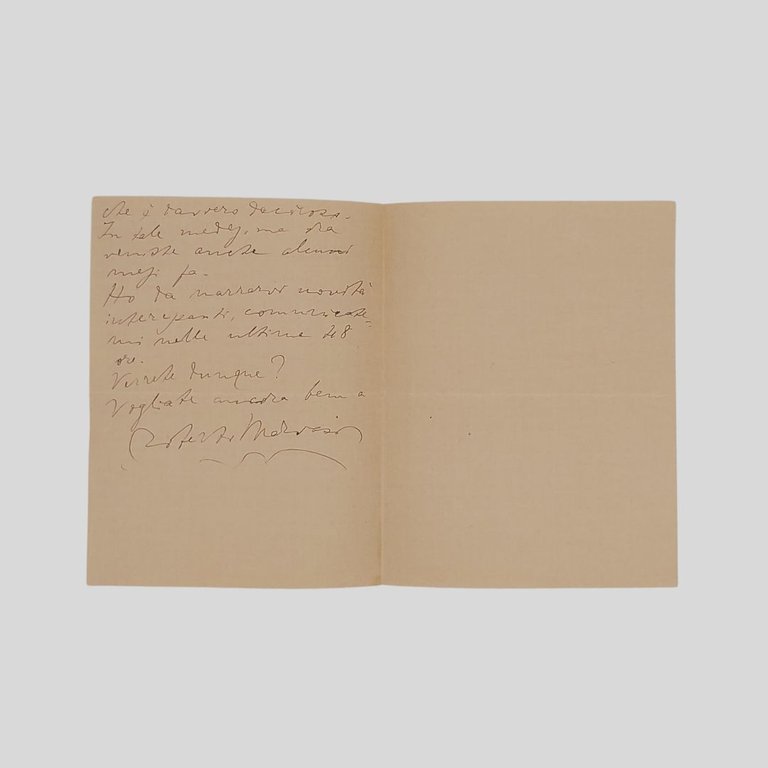 che è davvero decoroso.
In tale medesima ora
veniste anche alcuni
mesi fa.
Ho da narrarvi novità
interessanti, comunicate=
mi nelle ultime 48
ore.
Verrete dunque?
Vogliate ancora bene a
Roberto Marvasi